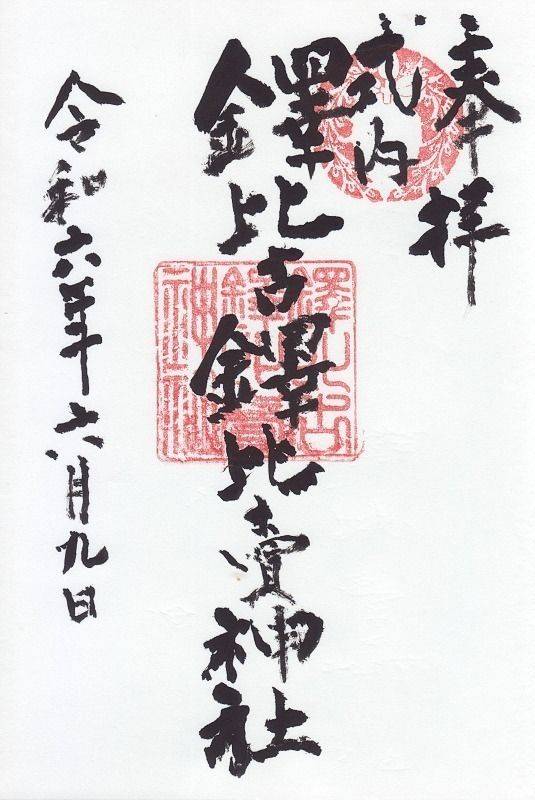 奉拝
式内
鐸比古鐸比賣神社
令和六年六月九日